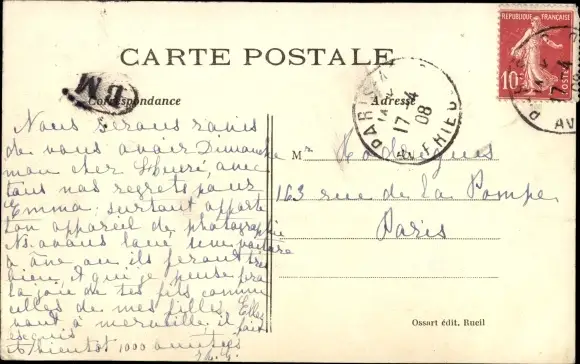 CARTE POSTALE
RÉPUBLIQUE FRANÇAISE
10
B M
Correspondance
Adresse
PARIS
17-4
08
AV. FRIED
17-4
Nous serons ravis
de vous avoir Dimanche
mon cher avec
tous nos regrets pour
Emma. Surtout apporte
ton appareil de photographie
Ns. avons loué une voiture
à âne où ils feront très
bien, et qui je pense fera
la joie de tes fils comme
celles de mes filles. Elles
vont à merveille, il fait
exquis
A bientôt 1000 amitiés
Mr
163 rue de la Pompe
Paris
Ossart édit. Rueil